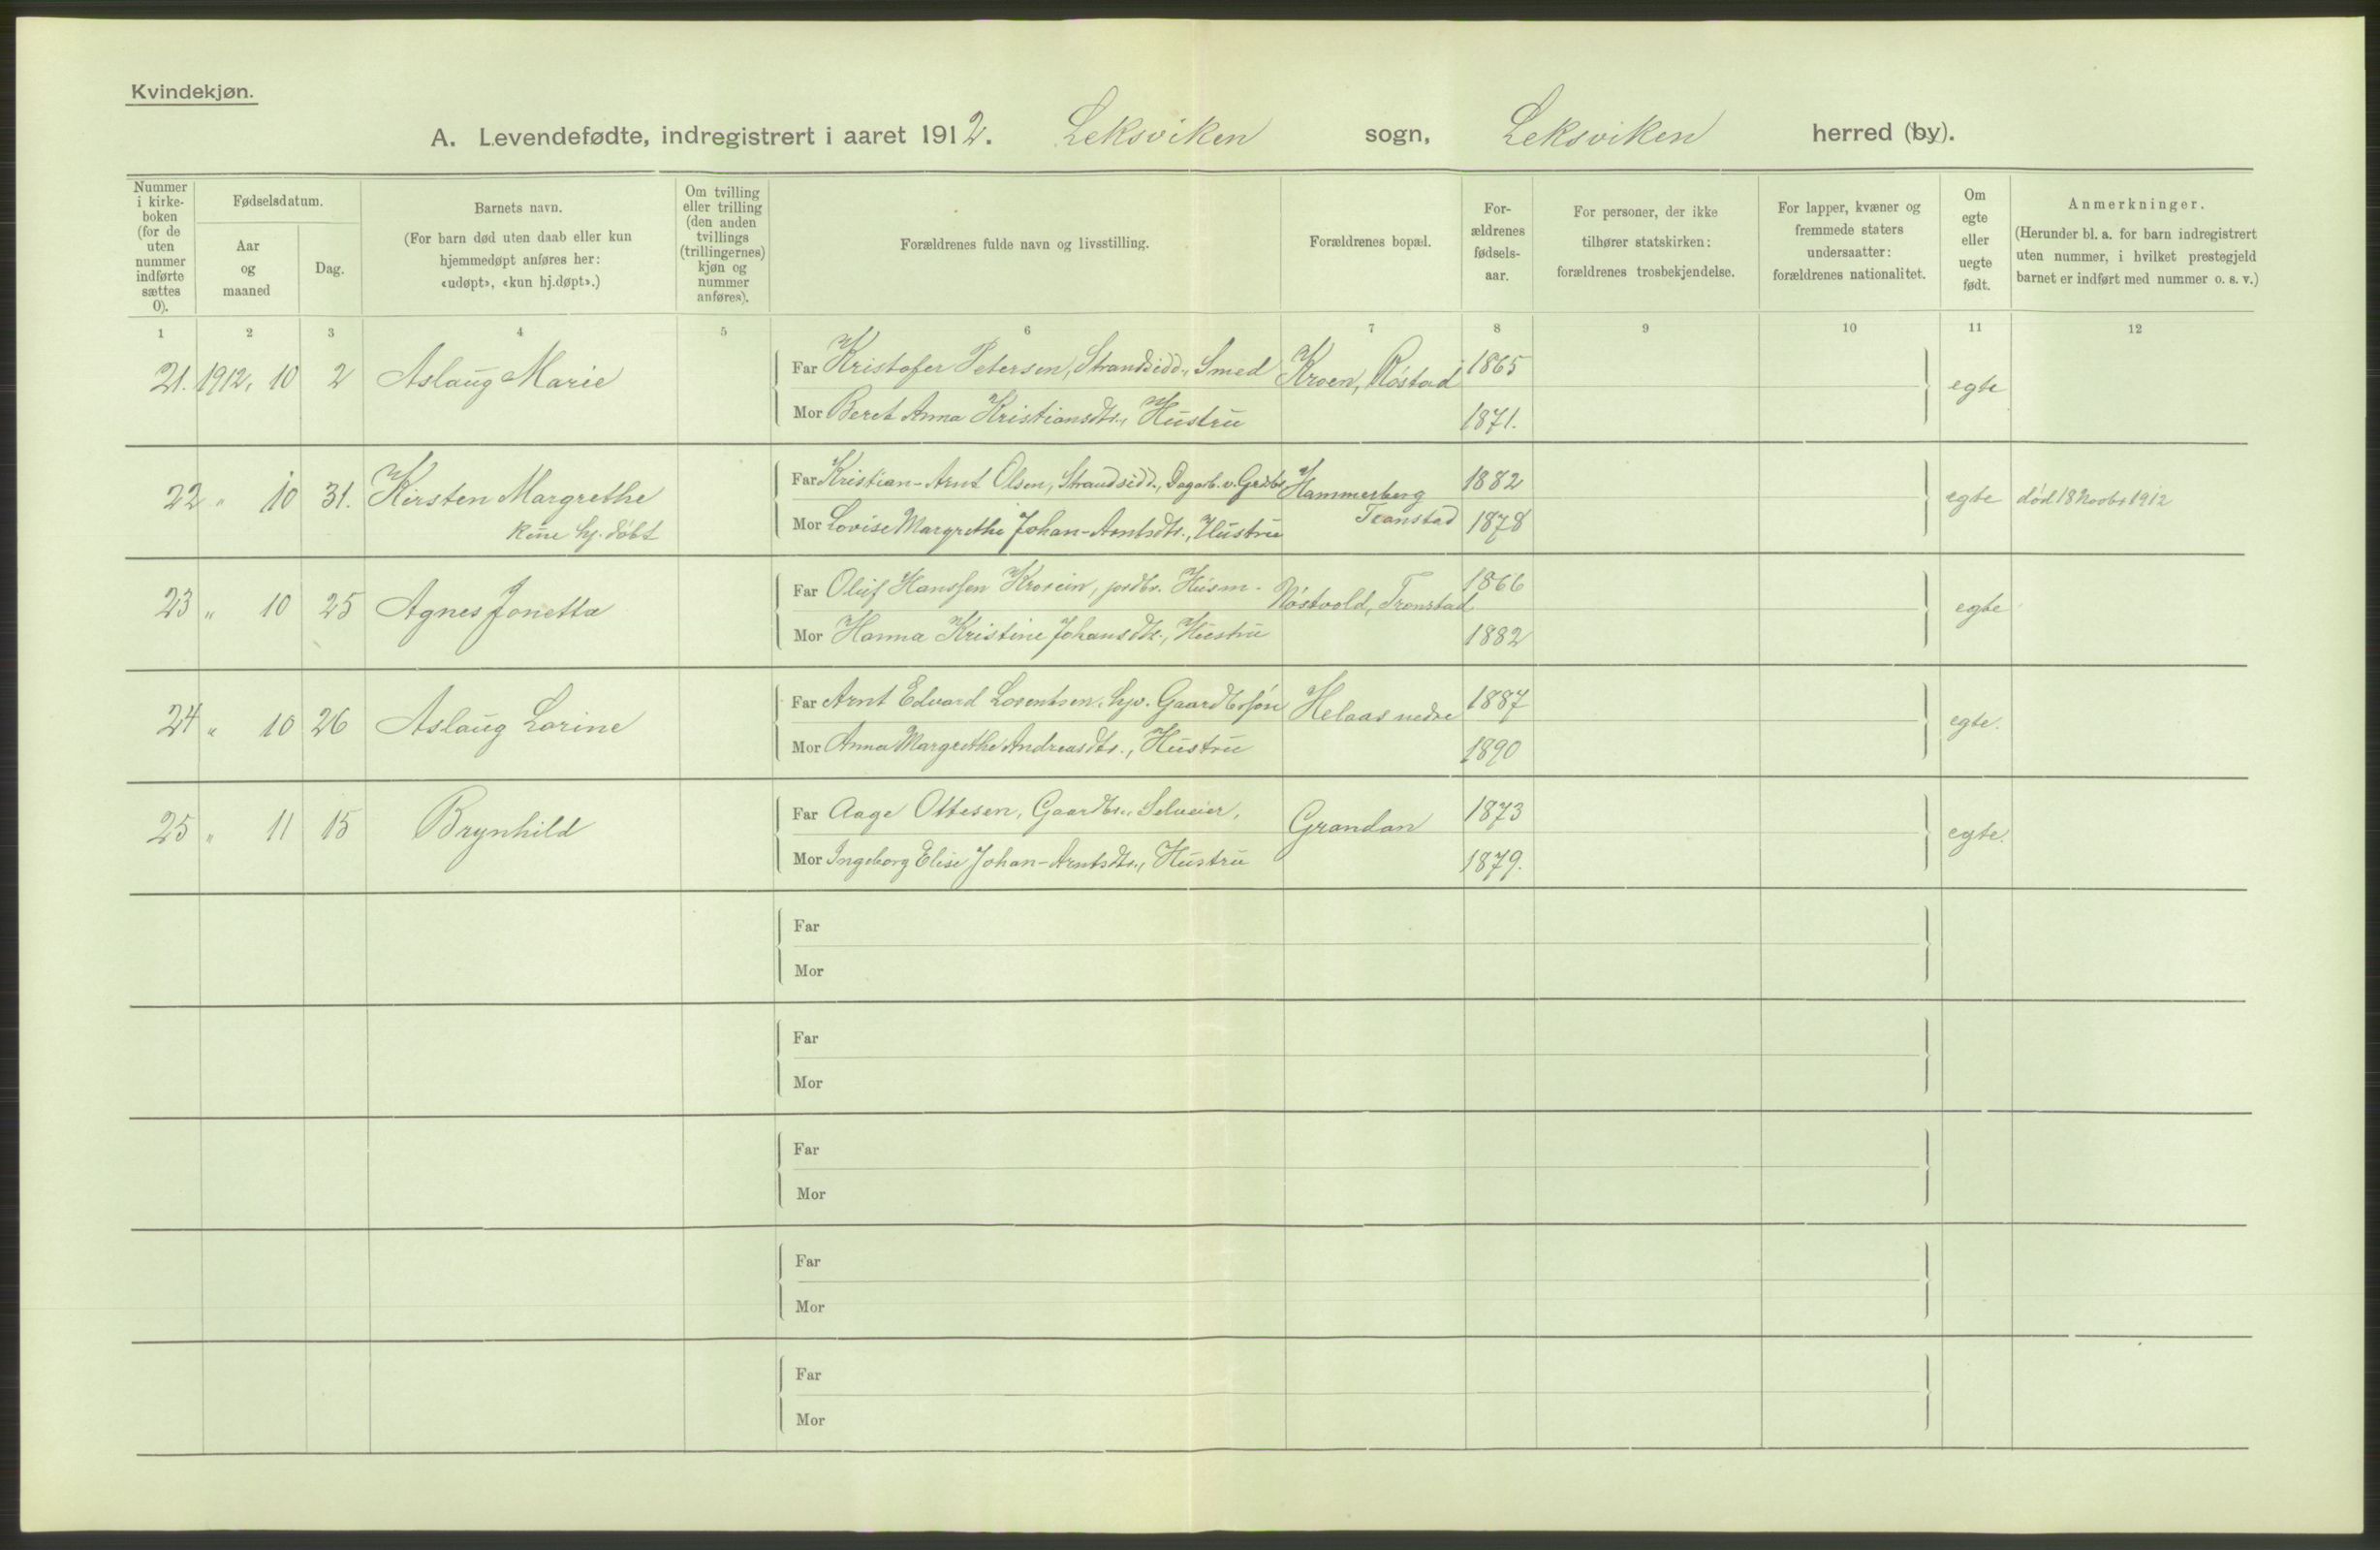 Kvindekjøn.
A. Levendefødte, indregistrert i aaret 1912. Leksviken sogn, Leksviken herred (by).
Nummer i kirke-boken (for de uten nummer indførte sættes 0).
Fødselsdatum.
Aar og maaned
Dag.
Barnets navn.
(For barn død uten daab eller kun hjemmedøpt anføres her: «udøpt», «kun hj.døpt».)
Om tvilling eller trilling (den anden tvillings (trillingernes) kjøn og nummer anføres).
Forældrenes fulde navn og livsstilling.
Forældrenes bopæl.
For-ældrenes fødsels-aar.
For personer, der ikke tilhører statskirken: forældrenes trosbekjendelse.
For lapper, kvæner og fremmede staters undersaatter: forældrenes nationalitet.
Om egte eller uegte født.
Anmerkninger.
(Herunder bl. a. for barn indregistrert uten nummer, i hvilket prestegjeld barnet er indført med nummer o. s. v.)
1 2 3 4 5 6 7 8 9 10 11 12
21. 1912, 10 2 Aslaug Marie
Far Kristofer Petersen, Strandsidd., Smed Kroen, Røstad 1865
egte
Mor Beret Anna Kristiansdtr., Hustru 1871.
22 " 10 31. Kirsten Margrethe
kun hj. døbt
Far Kristian-Arnt Olsen, Strandsidd., Dagarb. v. Grdbr. Hammerberg 1882
egte død 18 Novbr 1912
Mor Lovise Margrethe Johan-Arntsdtr., Hustru Transtad 1878
23 " 10 25 Agnes Jonetta
Far Oluf Hanssen, jordbr. Husm. Tronstad 1866
egte
Mor Hanna Kristine Johansdtr., Hustru 1882
24 " 10 26 Aslaug Lorine
Far Arnt Edvard Lorentsen, hjv. Gaardbrsøn Helaas nedre 1887
egte.
Mor Anna Margrethe Andreasdtr., Hustru 1890
25 " 11 15 Brynhild
Far Aage Ottesen, Gaardbr., Selveier, Grandan 1873
egte.
Mor Ingeborg Elise Johan-Arntsdtr., Hustru 1879.
Far
Mor
Far
Mor
Far
Mor
Far
Mor
Far
Mor